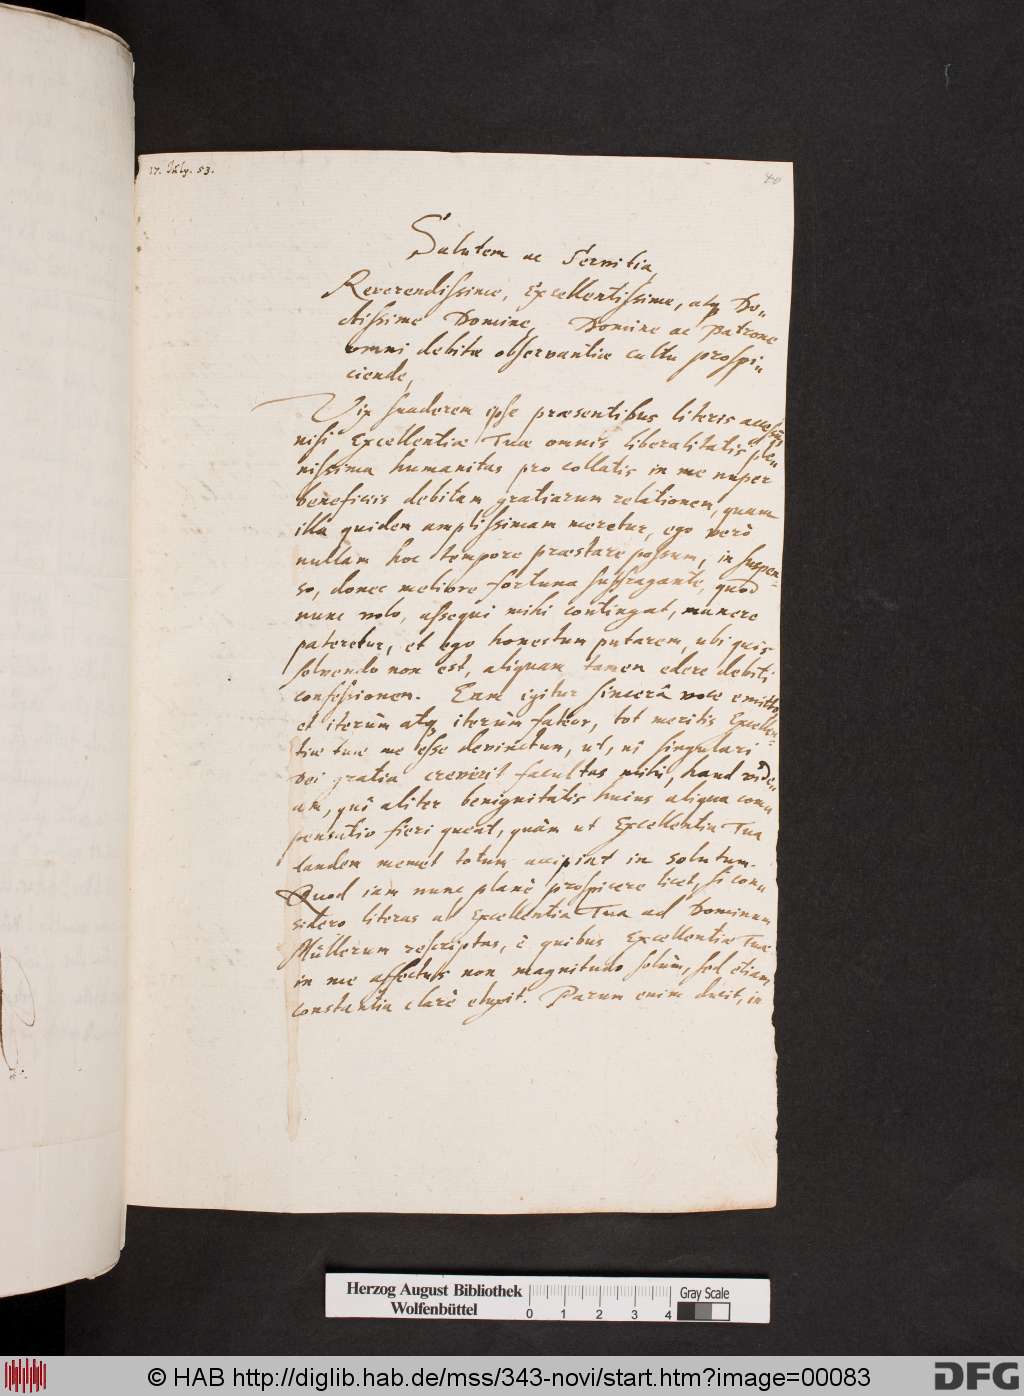 17. July. 53.
40
Salutem ac Servitia,
Reverendissime, Excellentissime, atq Do„
ctissime Domine, Domine ac Patrone
omni debitæ observantiæ cultu prospi„
ciende,
Vix suaderem ipse præsentibus literis
nisi Excellentiæ Tuæ omnis liberalitatis ple„
nissima humanitas pro collatis in me nuper
beneficiis debitam gratiarum relationem, quam
illa quidem amplissimam meretur, ego verò
nullam hoc tempore præstare possum, in suspen„
so, donec meliore fortuna suffragante, quod
nunc volo, assequi mihi contingat, manere
pateretur, et ego honestum putarem, ubi quis
solvendo non est, aliquam tamen edere debiti
confessionem. Eam igitur sincerâ voce emitto,
et iterùm atq iterùm fateor, tot meritis Excellen„
tiæ tuæ me esse devinctum, ut, ni singulari
Dei gratia creverit facultas mihi, haud vide„
am, quî aliter benignitatis huius aliqua com„
pensatio fieri queat, quàm ut Excellentia Tua
tandem memet totum accipiat in solutum.
Quod iam nunc planè prospicere licet, si con„
sidero literas ab Excellentia Tua ad Dominum
Müllerum rescriptas, è quibus Excellentiæ Tuæ
in me affectus non magnitudo solùm, sed etiam
constantia clarè eluxit. Parum enim ducit, in
Herzog August Bibliothek
Wolfenbüttel
0 1 2 3 4
Gray Scale
© HAB http://diglib.hab.de/mss/343-novi/start.htm?image=00083
DFG